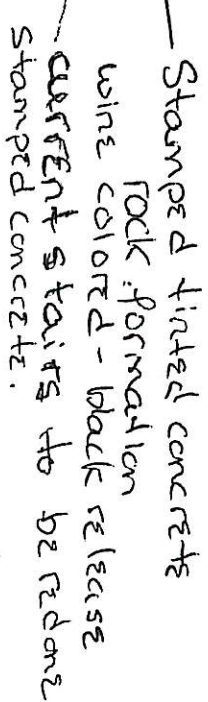 - Stamped tinted concrete
rock formation
wine colored - black release
- current stairs to be redone
stamped concrete.